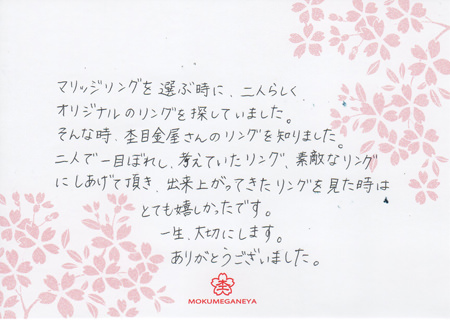 マリッジリングを選ぶ時に、二人らしく
オリジナルのリングを探していました。
そんな時、杢目金屋さんのリングを知りました。
二人で一目ぼれし、考えていたリング、素敵なリング
にしあげて頂き、出来上がってきたリングを見た時は
とても嬉しかったです。
一生、大切にします。
ありがとうございました。
MOKUMEGANEYA